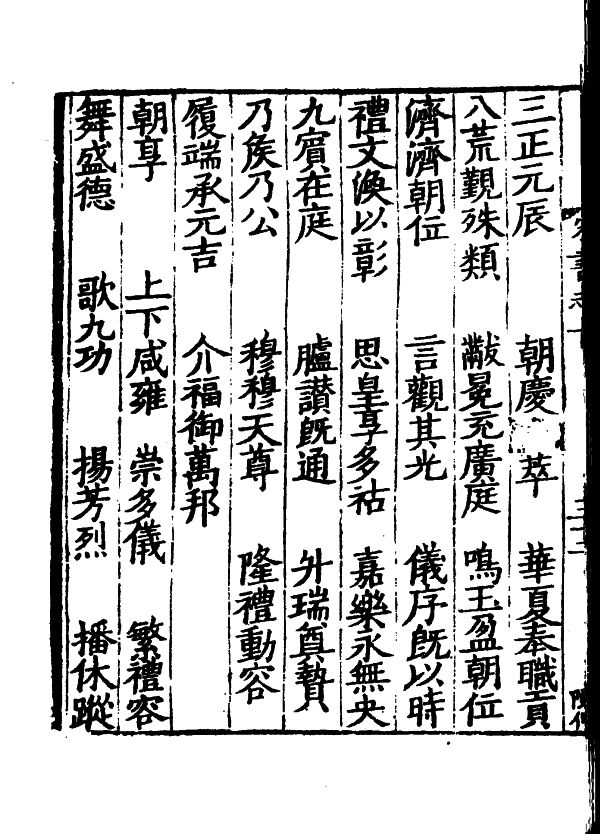 三正元辰　朝慶　萃　華夏奉職貢
八荒覲殊類　黻冕充廣庭　鳴玉盈朝位
濟濟朝位　言觀其光　儀序旣以時
禮文渙以彰　思皇享多祜　嘉樂永無央
九賓在庭　臚讃旣通　升瑞奠贄
乃侯乃公　穆穆天尊　隆禮動容
履端承元吉　介福御萬邦
朝享　上下咸雍　崇多儀　繁禮容
舞盛德　歌九功　揚芳烈　播休蹤